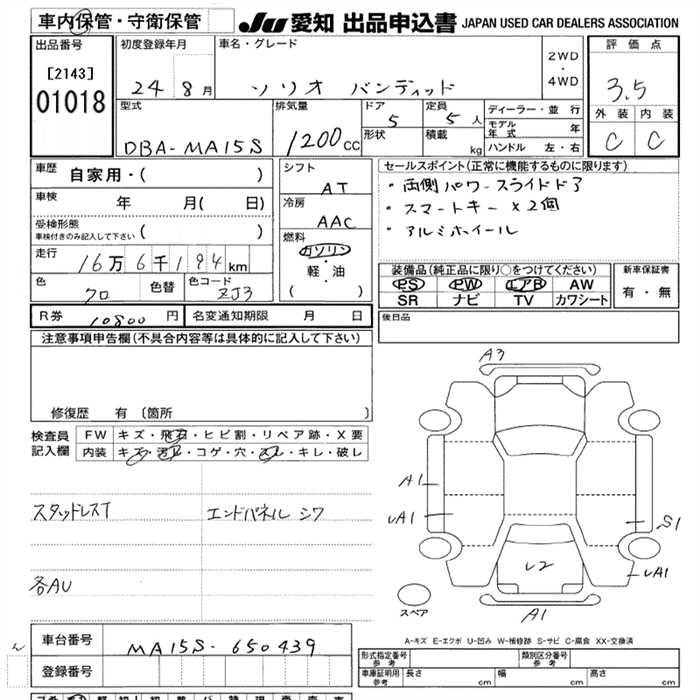 車内保管・守衛保管
JU 愛知 出品申込書 JAPAN USED CAR DEALERS ASSOCIATION
出品番号 [2143] 01018
初度登録年月 24 8月
車名・グレード ソリオ バンディッド
2WD・4WD
評価点 3.5
外装 C 内装 C
型式 DBA-MA15S
排気量 1200cc
ドア 5 定員 5人
形状 積載 kg
ディーラー・並行
モデル年式 年
ハンドル 左・右
車歴 自家用・( )
車検 年 月( 日)
受検形態 車検付きのみ記入して下さい ( )
走行 16万6千194km
色 クロ 色替 色コード ZJ3
シフト AT
冷房 AAC
燃料 ガソリン・軽・油 ( )
セールスポイント(正常に機能するものに限ります)
・両側パワースライドドア
・スマートキー×2個
・アルミホイール
装備品(純正品に限り○をつけてください)
PS PW エアB AW
SR ナビ TV カワシート
新車保証書 有・無
R券 10800円 名変通知期限 月 日
後日品
注意事項申告欄(不具合内容等は具体的に記入して下さい)
修復歴 有 〔箇所 〕
検査員記入欄
FW キズ・飛石・ヒビ割・リペア跡・X要
内装 キズ・汚れ・コゲ・穴・スレ・キレ・破レ
スタッドレスT
エンドパネル シワ
各AU
A3
A1
A1
S1
U2
A1
スペア
A1
A-キズ E-エクボ U-凹み W-補修跡 S-サビ C-腐食 XX-交換済
車台番号 MA15S-650439
登録番号
形式指定番号 参考 類別区分番号 参考
車庫証明用 参考 長さ cm 幅 cm 高さ cm